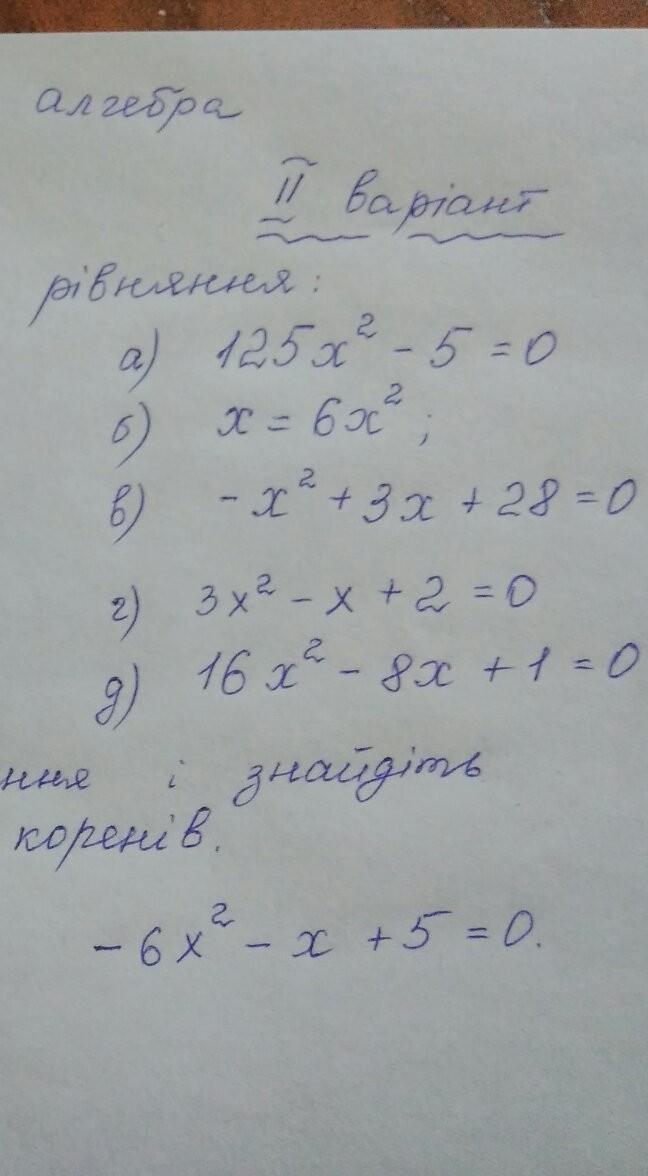 алгебра
II варіант
рівняння:
а) 125x² - 5 = 0
б) x = 6x²;
в) -x² + 3x + 28 = 0
г) 3x² - x + 2 = 0
д) 16x² - 8x + 1 = 0
ння і знайдіть
коренів.
-6x² - x + 5 = 0.